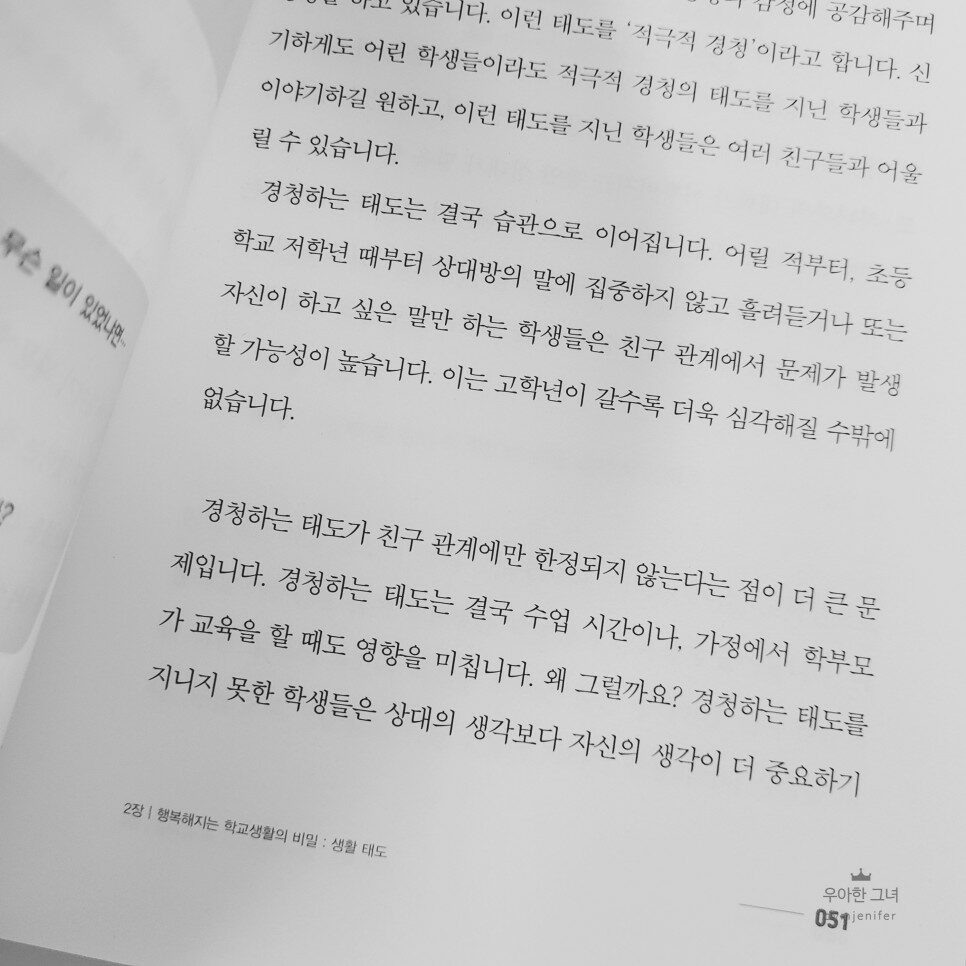 감정에 공감해주며
하고 있습니다. 이런 태도를 ‘적극적 경청’이라고 합니다. 신
기하게도 어린 학생들이라도 적극적 경청의 태도를 지닌 학생들과
이야기하길 원하고, 이런 태도를 지닌 학생들은 여러 친구들과 어울
릴 수 있습니다.
경청하는 태도는 결국 습관으로 이어집니다. 어릴 적부터, 초등
학교 저학년 때부터 상대방의 말에 집중하지 않고 흘려듣거나 또는
자신이 하고 싶은 말만 하는 학생들은 친구 관계에서 문제가 발생
할 가능성이 높습니다. 이는 고학년이 갈수록 더욱 심각해질 수밖에
없습니다.
경청하는 태도가 친구 관계에만 한정되지 않는다는 점이 더 큰 문
제입니다. 경청하는 태도는 결국 수업 시간이나, 가정에서 학부모
가 교육을 할 때도 영향을 미칩니다. 왜 그럴까요? 경청하는 태도를
지니지 못한 학생들은 상대의 생각보다 자신의 생각이 더 중요하기
2장 | 행복해지는 학교생활의 비밀 : 생활 태도
051
무슨 일이 있었냐면...
우아한 그녀